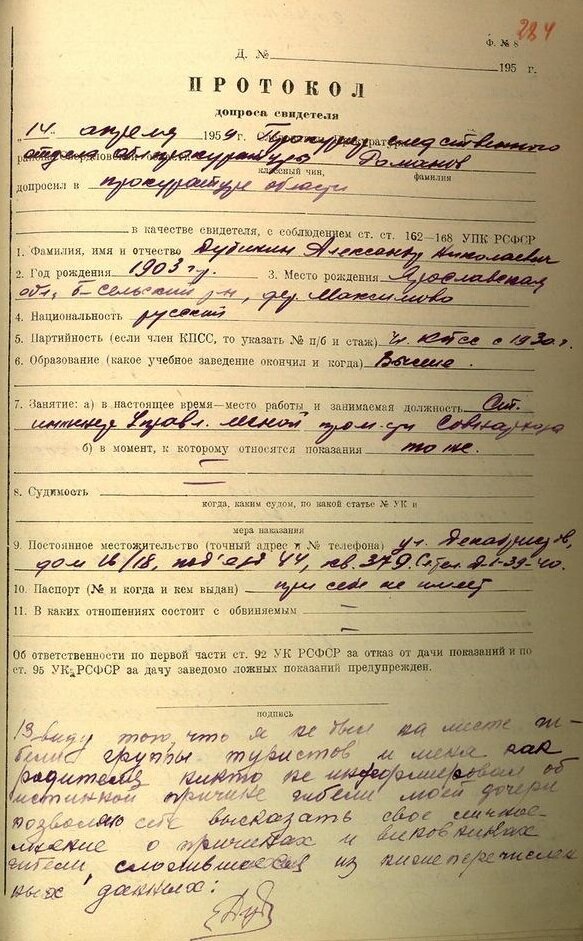 224
Ф. № 8
Д. № 195 г.
ПРОТОКОЛ
допроса свидетеля
„14 апреля 1959 г. Прокурор следственного
отдела облпрокуратуры Романов
классный чин, фамилия
допросил в прокуратуре области
в качестве свидетеля, с соблюдением ст. ст. 162—168 УПК РСФСР
1. Фамилия, имя и отчество Дубинин Александр Николаевич
2. Год рождения 1903 г. 3. Место рождения Ярославская
обл, Б-сельский р-н, дер. Максимово
4. Национальность русский
5. Партийность (если член КПСС, то указать № п/б и стаж) чл. КПСС с 1930 г.
6. Образование (какое учебное заведение окончил и когда) Высшее.
7. Занятие: а) в настоящее время—место работы и занимаемая должность Ст.
инженер Управл. лесной пром-сти Совнархоза
б) в момент, к которому относятся показания то же.
8. Судимость —
когда, каким судом, по какой статье № УК и
мера наказания
9. Постоянное местожительство (точный адрес и № телефона) ул. Декабристов,
дом 16/18, под'езд 44, кв. 37 Д-1-39-40.
10. Паспорт (№ и когда и кем выдан) при себе не имеет
11. В каких отношениях состоит с обвиняемым —
Об ответственности по первой части ст. 92 УК РСФСР за отказ от дачи показаний и по
ст. 95 УК РСФСР за дачу заведомо ложных показаний предупрежден.
подпись
Ввиду того, что я не был на месте ги-
бели группы туристов и меня как
родителя никто не информировал об
истинной причине гибели моей дочери
позволяю себе высказать свое личное
мнение о причинах и виновниках
гибели, сложившееся из нижеперечислен
ных данных: